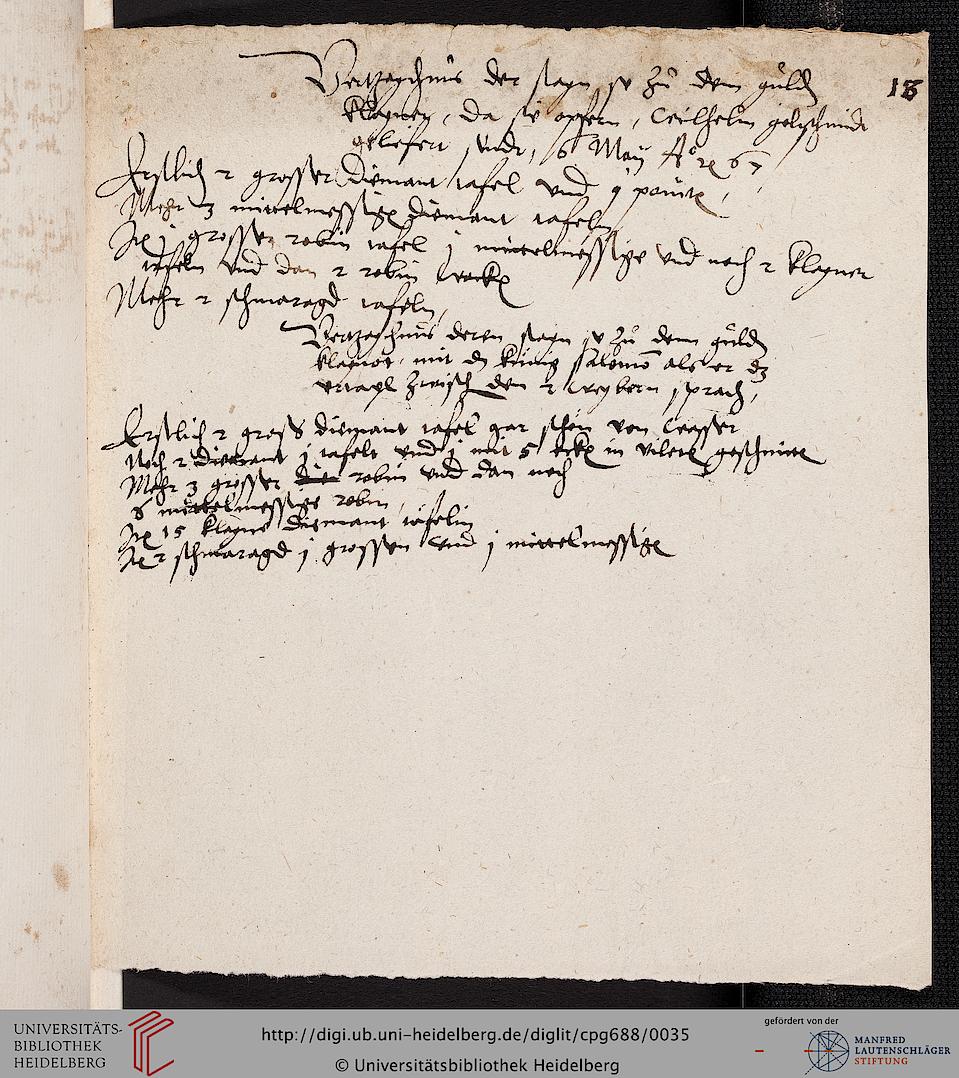 Vertzaychnus der stayn so zu dem guldn
18
klaynen, da sie opfern, Wilhelm goltschmidt
geliefert sindt, 6 May A° 67
Erstlich 2 grosser diemant tafel und j
Mehr 3 mittelmessige diemant tafeln
It j grossen robin tafel j mittelmessige und noch 2 klayner
tafeln und dan 2 robin
Mehr 2 schmaragd tafeln,
Vertzaychnus deren stayn so zu dem guldn
klaynot, mit dem künig salomo als er dz
urtayl zwisch den 2 weybern sprach,
Erstlich 2 gross diemant tafel gar schön von wasser
Noch 2 diemant j tafelt und j mit 5 eckh in geschnitte
Mehr 3 grosser die robin und dan noch
6 mittelmessige robin
It 15 klayne diemant täfelin
It 2 schmaragd j grossen und j mittelmessige
UNIVERSITÄTS-
BIBLIOTHEK
HEIDELBERG
http://digi.ub.uni-heidelberg.de/diglit/cpg688/0035
© Universitätsbibliothek Heidelberg
gefördert von der
MANFRED
LAUTENSCHLÄGER
STIFTUNG